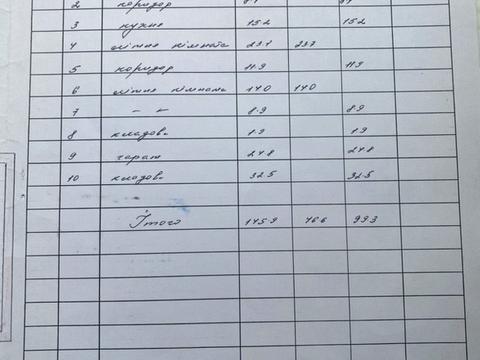 2 коридор
3 кухне 15.2 15.2
4 житне кімнота 23.7 23.7
5 коридор 11.9 11.9
6 житне кімнота 14.0 14.0
7 – " – 8.9 8.9
8 кладова 1.9 1.9
9 гараж 24.8 24.8
10 кладова 32.5 32.5
Ітого 145.9 46.6 99.3